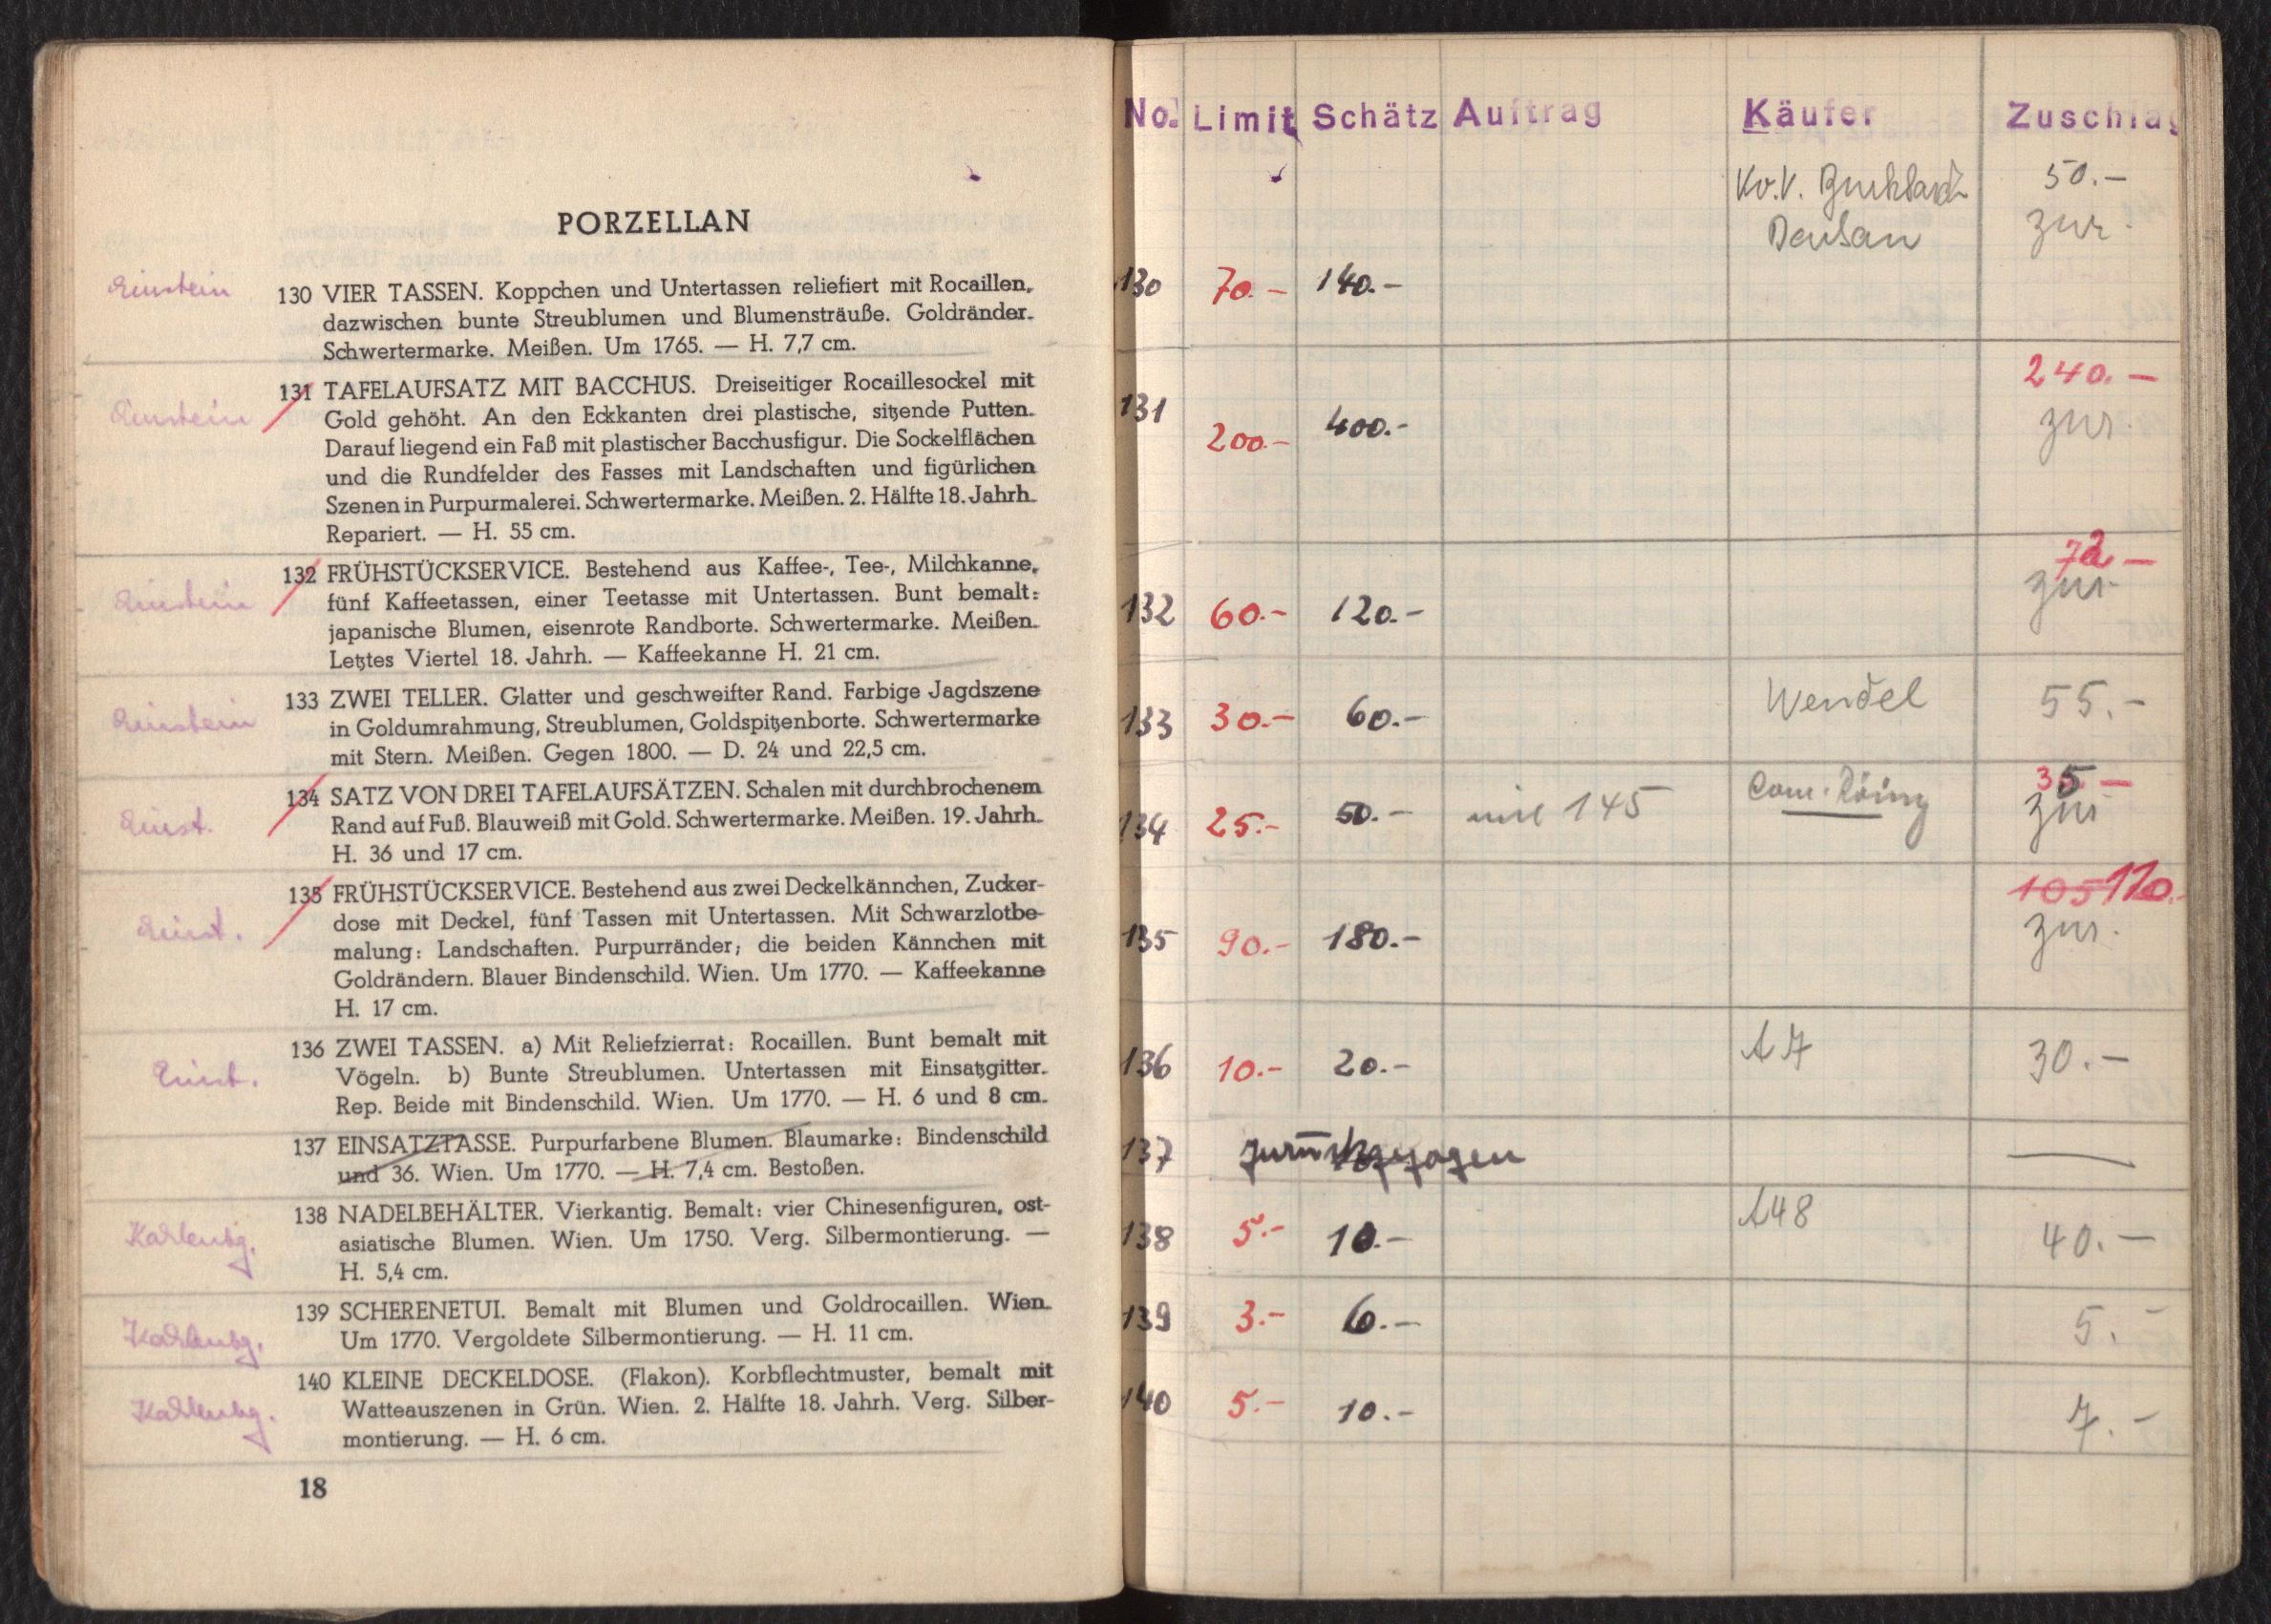 PORZELLAN
Einstein
130 VIER TASSEN. Koppchen und Untertassen reliefiert mit Rocaillen,
dazwischen bunte Streublumen und Blumensträuße. Goldränder.
Schwertermarke. Meißen. Um 1765. — H. 7,7 cm.
Einstein
131 TAFELAUFSATZ MIT BACCHUS. Dreiseitiger Rocaillesockel mit
Gold gehöht. An den Eckkanten drei plastische, sitzende Putten.
Darauf liegend ein Faß mit plastischer Bacchusfigur. Die Sockelflächen
und die Rundfelder des Fasses mit Landschaften und figürlichen
Szenen in Purpurmalerei. Schwertermarke. Meißen. 2. Hälfte 18. Jahrh.
Repariert. — H. 55 cm.
Einstein
132 FRÜHSTÜCKSERVICE. Bestehend aus Kaffee-, Tee-, Milchkanne,
fünf Kaffeetassen, einer Teetasse mit Untertassen. Bunt bemalt:
japanische Blumen, eisenrote Randborte. Schwertermarke. Meißen.
Letztes Viertel 18. Jahrh. — Kaffeekanne H. 21 cm.
Einstein
133 ZWEI TELLER. Glatter und geschweifter Rand. Farbige Jagdszene
in Goldumrahmung, Streublumen, Goldspitzenborte. Schwertermarke
mit Stern. Meißen. Gegen 1800. — D. 24 und 22,5 cm.
Einst.
134 SATZ VON DREI TAFELAUFSÄTZEN. Schalen mit durchbrochenem
Rand auf Fuß. Blauweiß mit Gold. Schwertermarke. Meißen. 19. Jahrh.
H. 36 und 17 cm.
Einst.
135 FRÜHSTÜCKSERVICE. Bestehend aus zwei Deckelkännchen, Zucker-
dose mit Deckel, fünf Tassen mit Untertassen. Mit Schwarzlotbe-
malung: Landschaften. Purpurränder; die beiden Kännchen mit
Goldrändern. Blauer Bindenschild. Wien. Um 1770. — Kaffeekanne
H. 17 cm.
Einst.
136 ZWEI TASSEN. a) Mit Reliefzierrat: Rocaillen. Bunt bemalt mit
Vögeln. b) Bunte Streublumen. Untertassen mit Einsatzgitter.
Rep. Beide mit Bindenschild. Wien. Um 1770. — H. 6 und 8 cm.
137 EINSATZTASSE. Purpurfarbene Blumen. Blaumarke: Bindenschild
und 36. Wien. Um 1770. — H. 7,4 cm. Bestoßen.
138 NADELBEHÄLTER. Vierkantig. Bemalt: vier Chinesenfiguren, ost-
asiatische Blumen. Wien. Um 1750. Verg. Silbermontierung. —
H. 5,4 cm.
139 SCHERENETUI. Bemalt mit Blumen und Goldrocaillen. Wien.
Um 1770. Vergoldete Silbermontierung. — H. 11 cm.
140 KLEINE DECKELDOSE. (Flakon). Korbflechtmuster, bemalt mit
Watteauszenen in Grün. Wien. 2. Hälfte 18. Jahrh. Verg. Silber-
montierung. — H. 6 cm.
18
No. Limit Schätz Auftrag Käufer Zuschlag
50.—
zur.
130 70.— 140.—
240.—
131 200.— 400.— zur.
72.—
132 60.— 120.— zur.
133 30.— 60.— Wendel 55.—
35.—
134 25.— 50.— mit 145 zur
105 110.—
135 90.— 180.— zur.
136 10.— 20.— A 7 30.—
137 zurückgezogen —
138 5.— 10.— A48 40.—
139 3.— 6.— 5.—
140 5.— 10.— 7.—